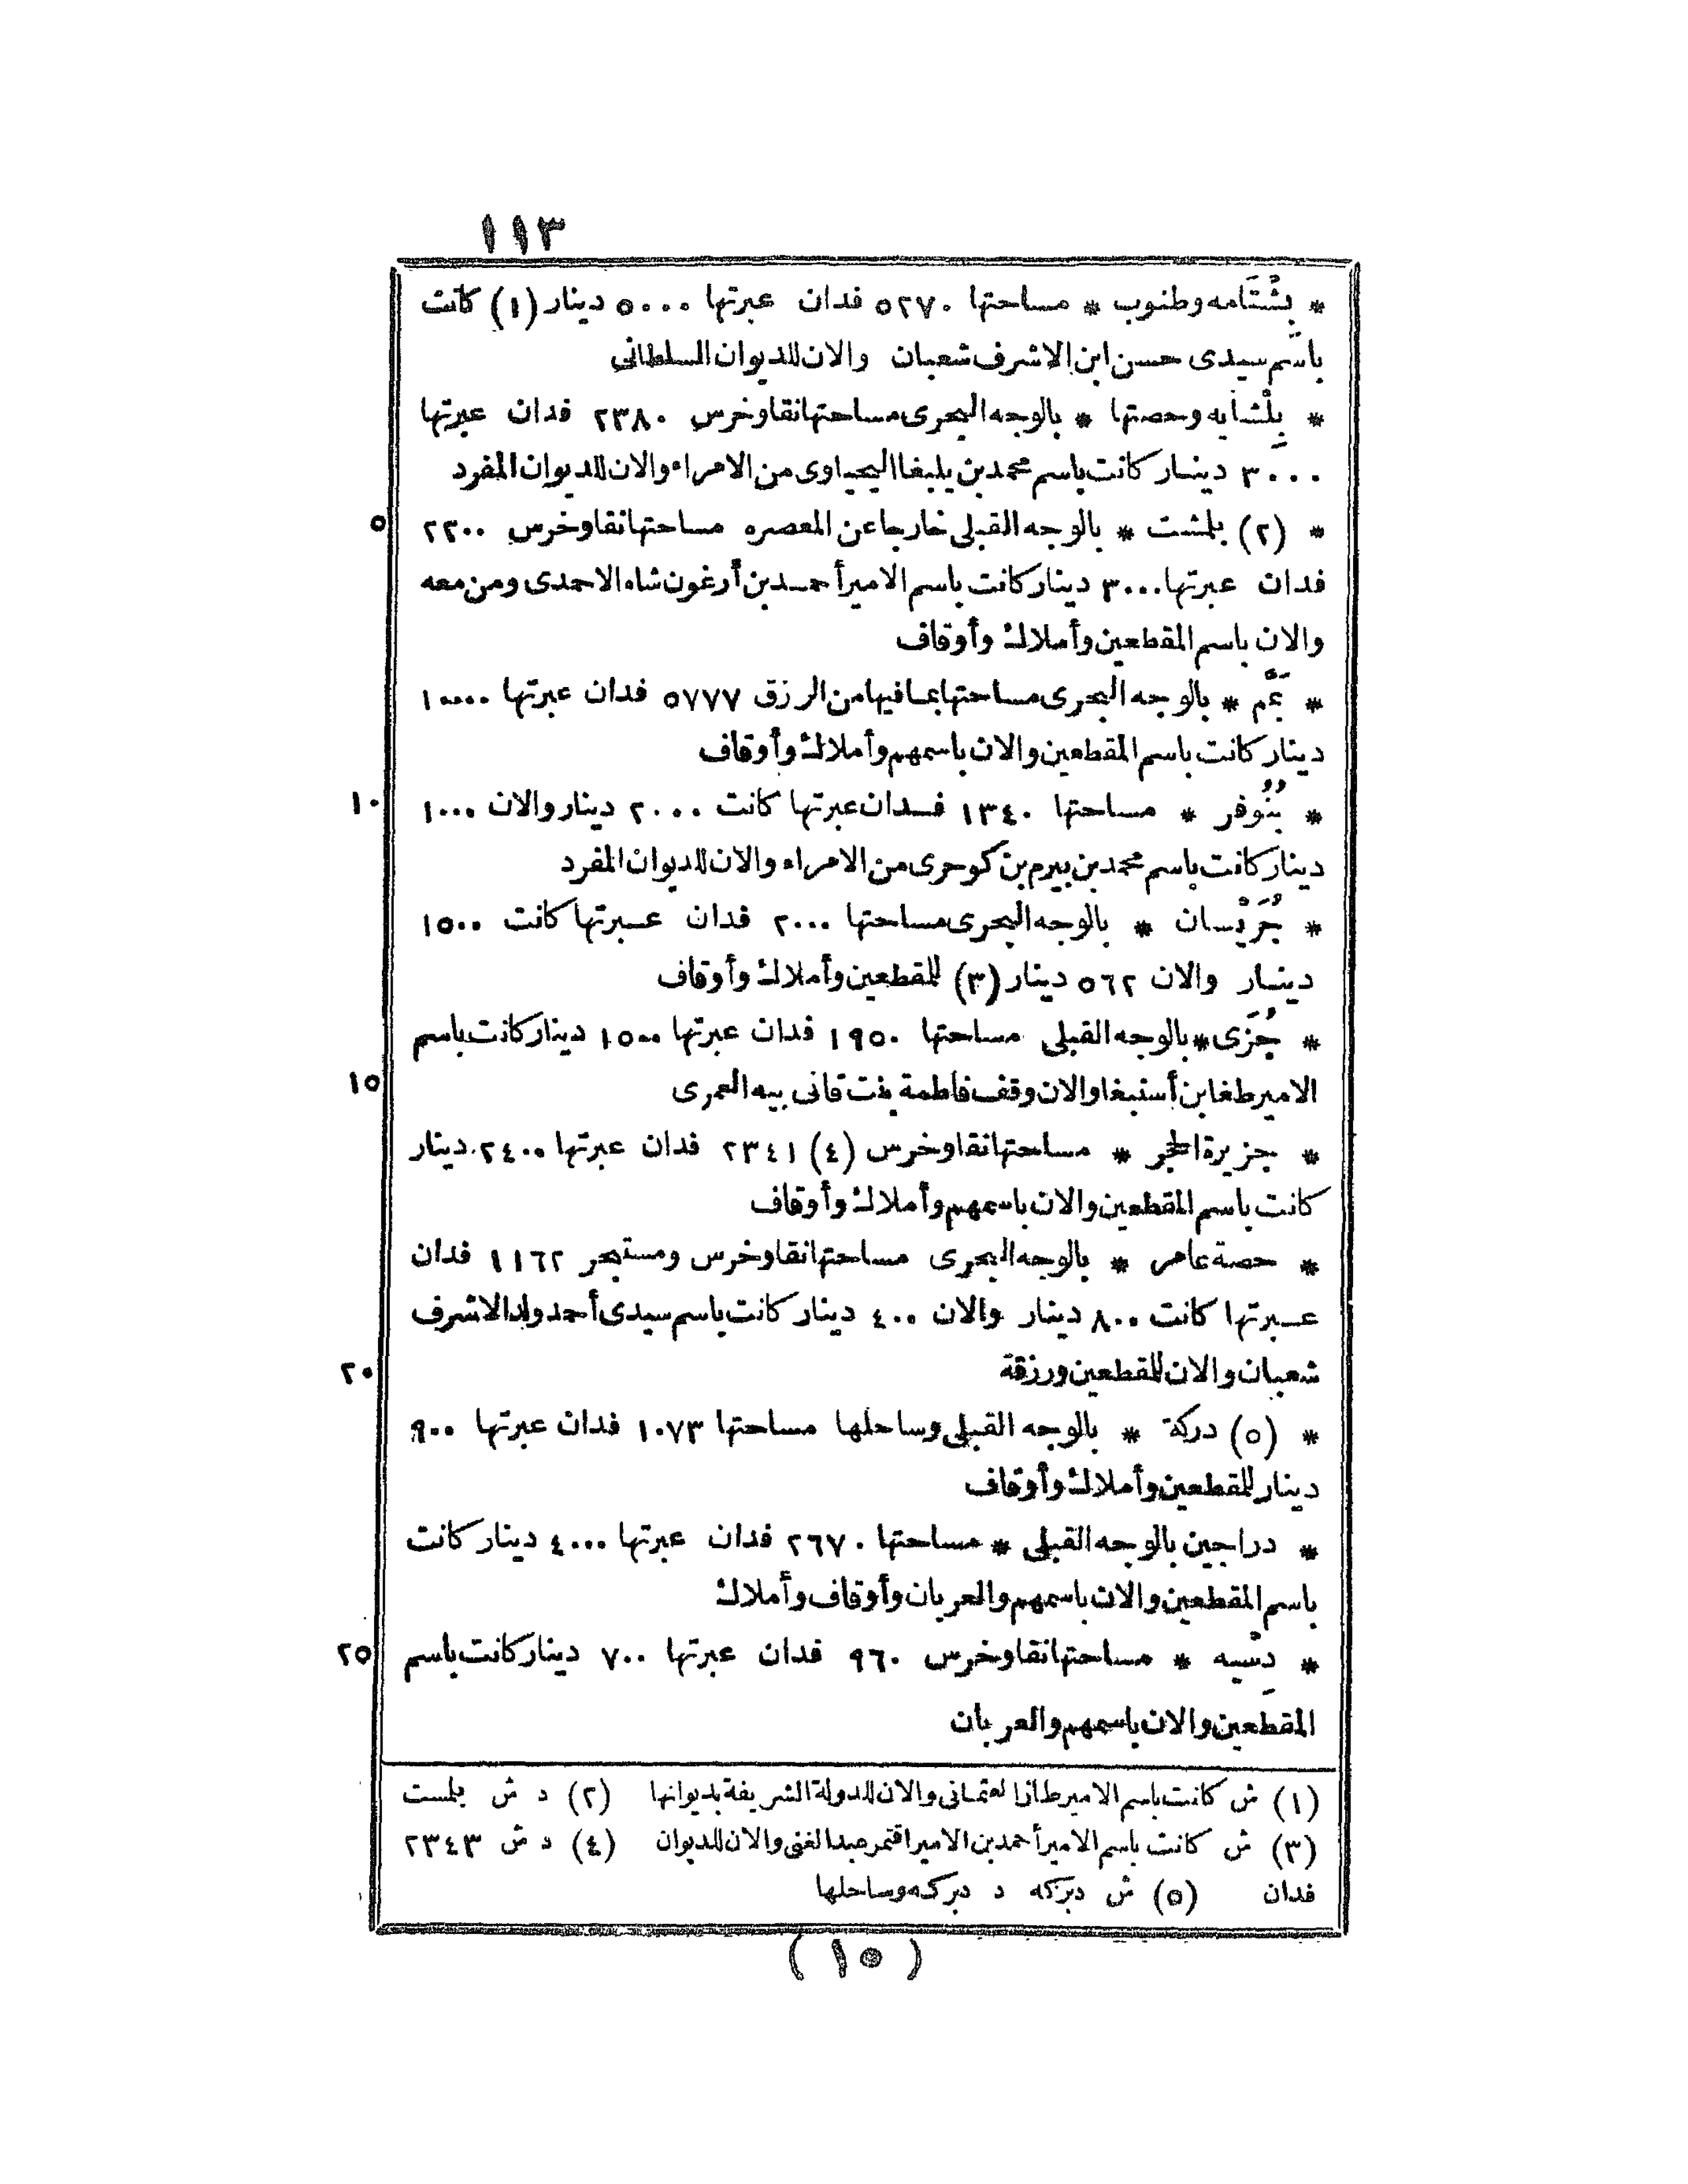 ١١٣
* بِشْتَامه وطنوب * مساحتها ٥٢٧٠ فدان عبرتها ٥٠٠٠ دينار (١) كانت
باسم سيدى حسن ابن الاشرف شعبان والان للديوان السلطانى
* بِلْشايه وحصتها * بالوجه البحرى مساحتها نقا وخرس ٢٣٨٠ فدان عبرتها
٣٠٠٠ دينار كانت باسم محمد بن يلبغا اليحياوى من الامراء والان للديوان المفرد
٥
* (٢) بلمشت * بالوجه القبلى خارجا عن المعصره مساحتها نقا وخرس ٢٢٠٠
فدان عبرتها ٣٠٠٠ دينار كانت باسم الامير أحمد بن أرغون شاه الاحمدى ومن معه
والان باسم المقطعين وأملاك وأوقاف
* بَمَّم * بالوجه البحرى مساحتها بما فيها من الرزق ٥٧٧٧ فدان عبرتها ١٠٠٠٠
دينار كانت باسم المقطعين والان باسمهم وأملاك وأوقاف
١٠
* بُنُوفر * مساحتها ١٣٤٠ فدان عبرتها كانت ٢٠٠٠ دينار والان ١٠٠٠
دينار كانت باسم محمد بن بيرم بن كوحرى من الامراء والان للديوان المفرد
* جُرَيْسان * بالوجه البحرى مساحتها ٢٠٠٠ فدان عبرتها كانت ١٥٠٠
دينار والان ٥٦٢ دينار (٣) للمقطعين وأملاك وأوقاف
* جُزَى * بالوجه القبلى مساحتها ١٩٥٠ فدان عبرتها ١٥٠٠ دينار كانت باسم
١٥
الامير طغا بن أسنبغا والان وقف فاطمة بنت قانى بيه العمرى
* جزيرة الحجر * مساحتها نقا وخرس (٤) ٢٣٤١ فدان عبرتها ٢٤٠٠ دينار
كانت باسم المقطعين والان باسمهم وأملاك وأوقاف
* حصة عامر * بالوجه البحرى مساحتها نقا وخرس ومستبحر ١١٦٢ فدان
عبرتها كانت ٨٠٠ دينار والان ٤٠٠ دينار كانت باسم سيدى أحمد ولد الاشرف
٢٠
شعبان والان للمقطعين ورزقة
* (٥) دركة * بالوجه القبلى وساحلها مساحتها ١٠٧٣ فدان عبرتها ٩٠٠
دينار للمقطعين وأملاك وأوقاف
* دراجين بالوجه القبلى * مساحتها ٢٦٧٠ فدان عبرتها ٤٠٠٠ دينار كانت
باسم المقطعين والان باسمهم والعربان وأوقاف وأملاك
٢٥
* دِسْيه * مساحتها نقا وخرس ٩٦٠ فدان عبرتها ٧٠٠ دينار كانت باسم
المقطعين والان باسمهم والعربان
(١) ش كانت باسم الامير طاز العثمانى والان للدولة الشريفة بديوانها (٢) د ش بلمست
(٣) ش كانت باسم الامير أحمد بن الامير اقتمر عبد الغنى والان للديوان (٤) د ش ٢٣٤٣
فدان (٥) ش دبركه د دبركه وساحلها
(١٥)